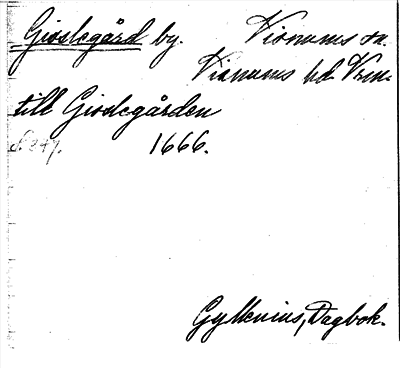 Gisslegård by. Vionums sn.
Vianums hd Vrm.
till Gisslegården
s. 347. 1666.
Gyllenius, Dagbok.